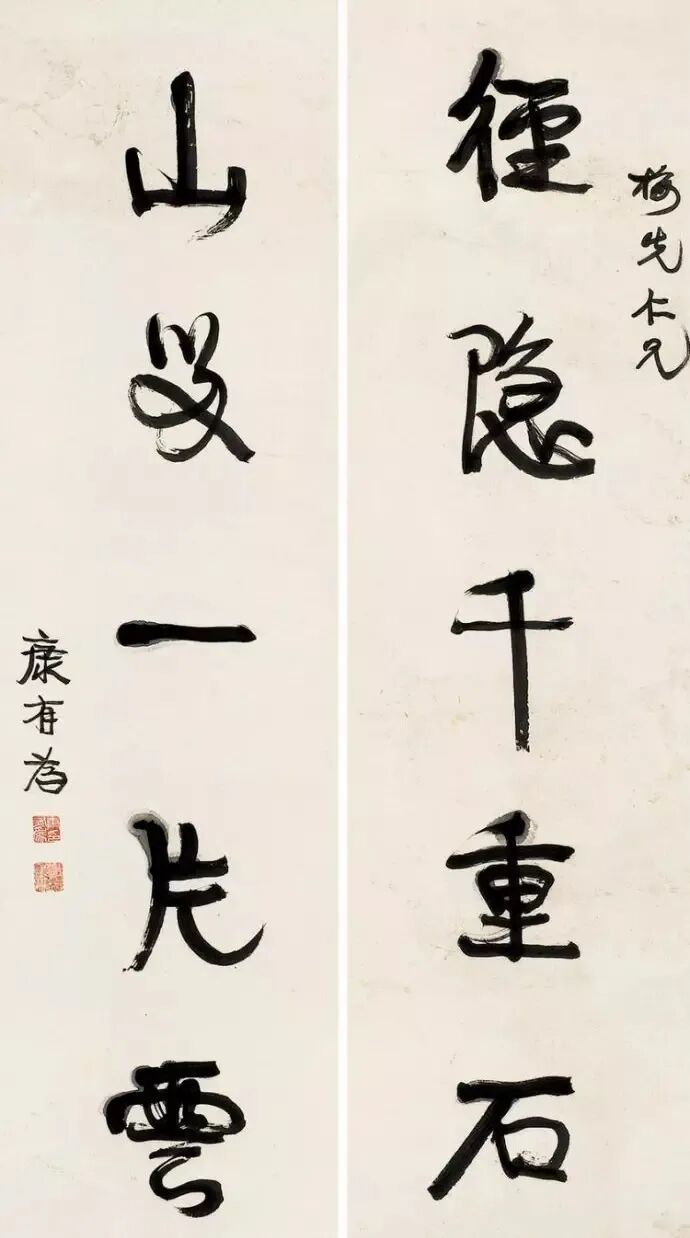 梅先仁兄
徑隐千重石
山一片雲
康有為